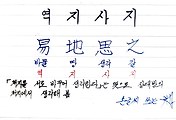 역지사지
易地思之
바꿀 땅 생각 갈
역 지 사 지
「처지를 서로 바꾸어 생각한다」는 뜻으로 상대방의
처지에서 생각해 봄